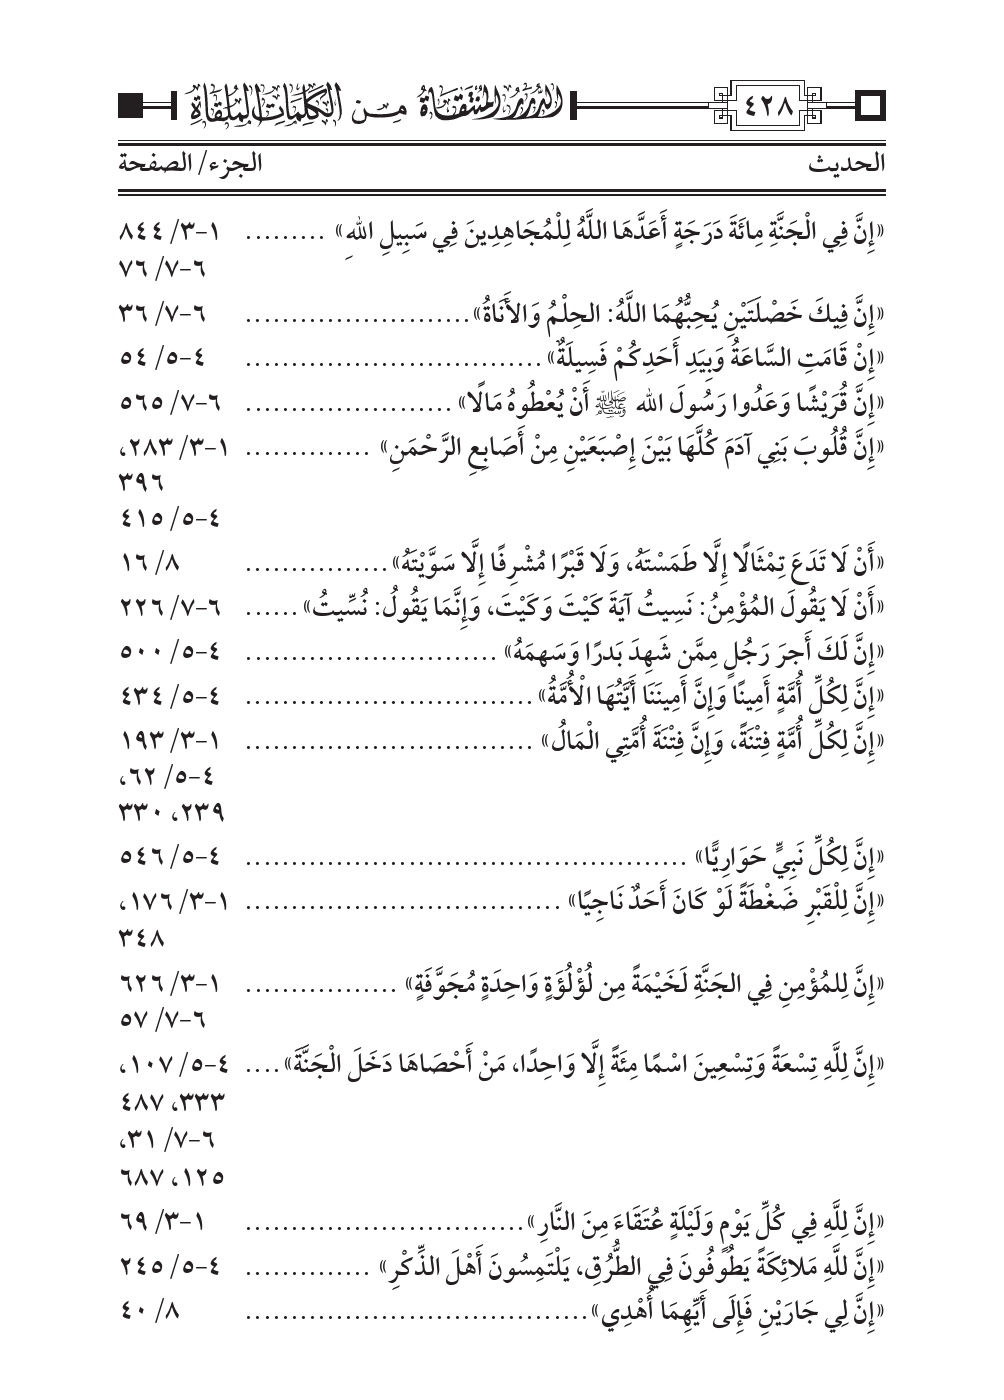 ٤٢٨ الدُّرَرُ المُنْتَقَاةُ مِنَ الكَلِمَاتِ المُلْقَاةِ
الحديث الجزء/ الصفحة
«إِنَّ فِي الْجَنَّةِ مِائَةَ دَرَجَةٍ أَعَدَّهَا اللَّهُ لِلْمُجَاهِدِينَ فِي سَبِيلِ اللهِ» ......... ١-٣/ ٨٤٤
٦-٧/ ٧٦
«إِنَّ فِيكَ خَصْلَتَيْنِ يُحِبُّهُمَا اللَّهُ: الحِلْمُ وَالأَنَاةُ» ........................ ٦-٧/ ٣٦
«إِنْ قَامَتِ السَّاعَةُ وَبِيَدِ أَحَدِكُمْ فَسِيلَةٌ» ................................ ٤-٥/ ٥٤
«إِنَّ قُرَيْشًا وَعَدُوا رَسُولَ الله ﷺ أَنْ يُعْطُوهُ مَالًا» ...................... ٦-٧/ ٥٦٥
«إِنَّ قُلُوبَ بَنِي آدَمَ كُلَّهَا بَيْنَ إِصْبَعَيْنِ مِنْ أَصَابِعِ الرَّحْمَنِ» .............. ١-٣/ ٢٨٣،
٣٩٦
٤-٥/ ٤١٥
«أَنْ لَا تَدَعَ تِمْثَالًا إِلَّا طَمَسْتَهُ، وَلَا قَبْرًا مُشْرِفًا إِلَّا سَوَّيْتَهُ» ................ ٨/ ١٦
«أَنْ لَا يَقُولَ المُؤْمِنُ: نَسِيتُ آيَةَ كَيْتَ وَكَيْتَ، وَإِنَّمَا يَقُولُ: نُسِّيتُ» ...... ٦-٧/ ٢٢٦
«إِنَّ لَكَ أَجرَ رَجُلٍ مِمَّن شَهِدَ بَدرًا وَسَهمَهُ» ............................ ٤-٥/ ٥٠٠
«إِنَّ لِكُلِّ أُمَّةٍ أَمِينًا وَإِنَّ أَمِينَنَا أَيَّتُهَا الْأُمَّةُ» ............................... ٤-٥/ ٤٣٤
«إِنَّ لِكُلِّ أُمَّةٍ فِتْنَةً، وَإِنَّ فِتْنَةَ أُمَّتِي الْمَالُ» ............................... ١-٣/ ١٩٣
٤-٥/ ٦٢،
٢٣٩، ٣٣٠
«إِنَّ لِكُلِّ نَبِيٍّ حَوَارِيًّا» ................................................ ٤-٥/ ٥٤٦
«إِنَّ لِلْقَبْرِ ضَغْطَةً لَوْ كَانَ أَحَدٌ نَاجِيًا» .................................. ١-٣/ ١٧٦،
٣٤٨
«إِنَّ لِلمُؤْمِنِ فِي الجَنَّةِ لَخَيْمَةً مِن لُؤْلُؤَةٍ وَاحِدَةٍ مُجَوَّفَةٍ» ................. ١-٣/ ٦٢٦
٦-٧/ ٥٧
«إِنَّ لِلَّهِ تِسْعَةً وَتِسْعِينَ اسْمًا مِئَةً إِلَّا وَاحِدًا، مَنْ أَحْصَاهَا دَخَلَ الْجَنَّةَ» .... ٤-٥/ ١٠٧،
٣٣٣، ٤٨٧
٦-٧/ ٣١،
١٢٥، ٦٨٧
«إِنَّ لِلَّهِ فِي كُلِّ يَوْمٍ وَلَيْلَةٍ عُتَقَاءَ مِنَ النَّارِ» .............................. ١-٣/ ٦٩
«إِنَّ للَّهِ مَلائِكَةً يَطُوفُونَ فِي الطُّرُقِ، يَلْتَمِسُونَ أَهْلَ الذِّكْرِ» .............. ٤-٥/ ٢٤٥
«إِنَّ لِي جَارَيْنِ فَإِلَى أَيِّهِمَا أُهْدِي» ..................................... ٨/ ٤٠